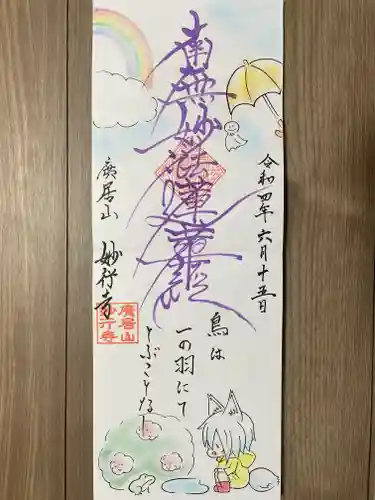 令和四年六月十五日
南無妙法蓮華経
廣居山 妙行寺
廣居山
妙行寺
鳥は
一の羽にて
とぶことなし